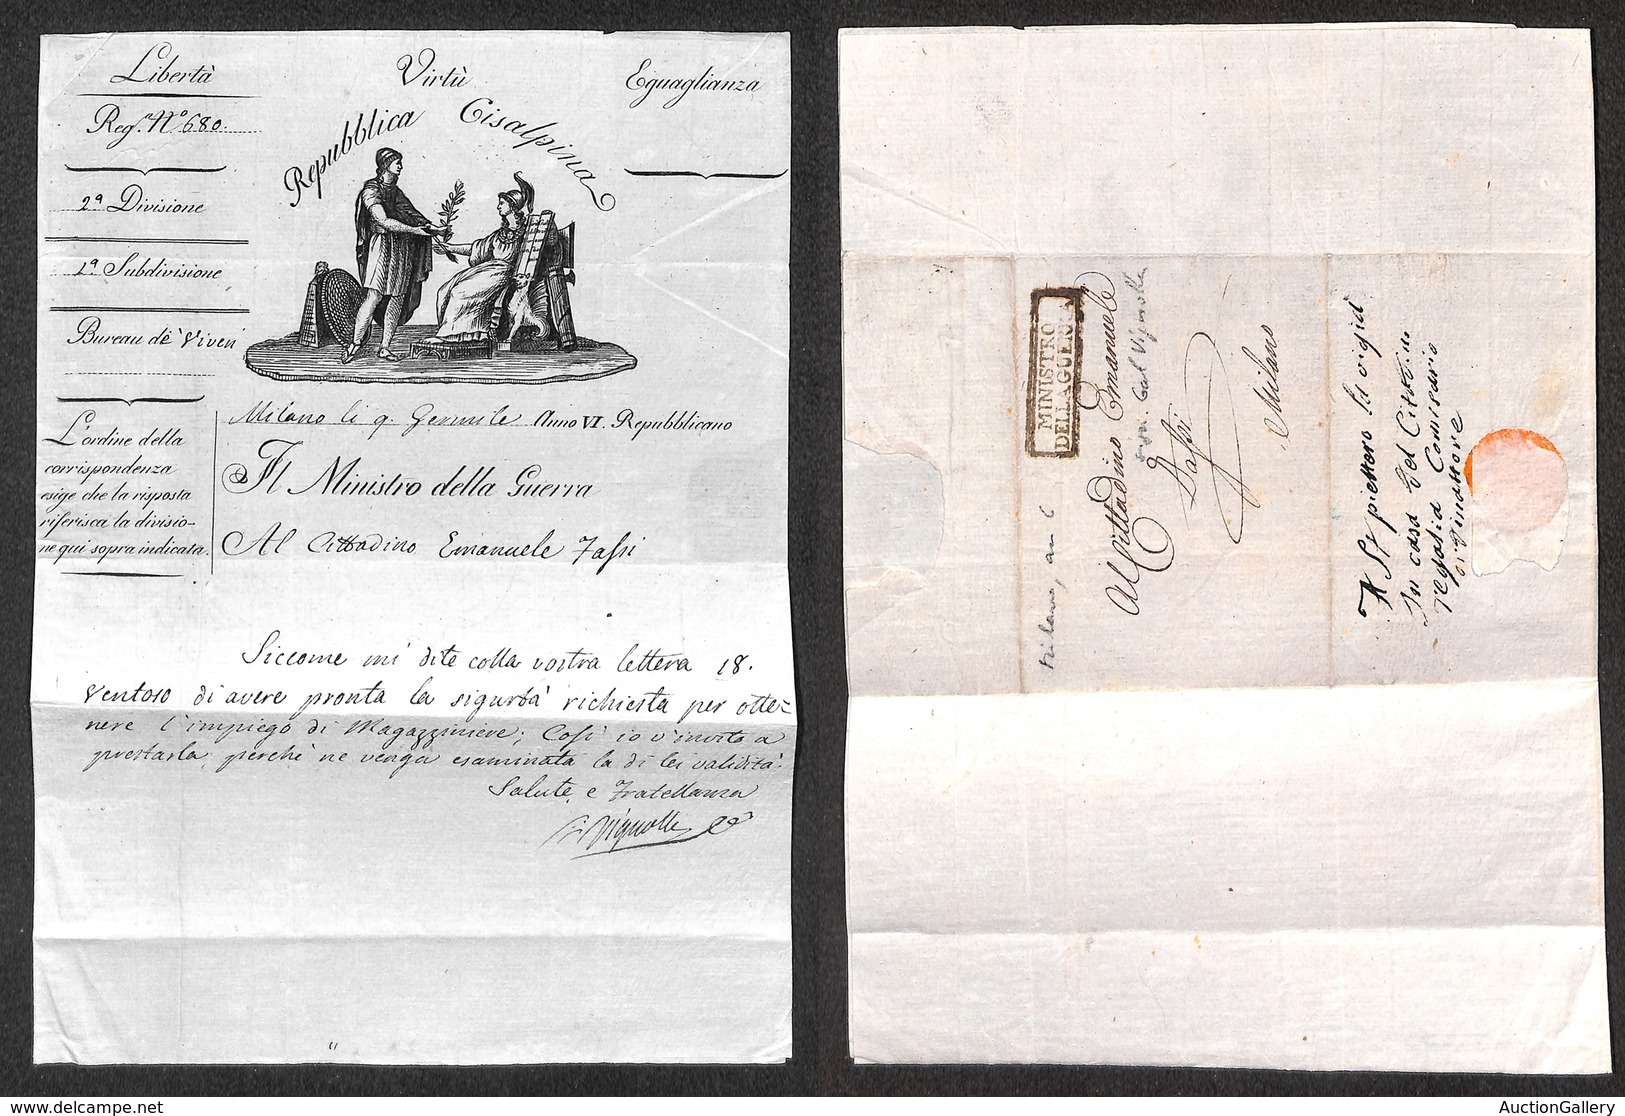 Libertà
Virtù
Eguaglianza
Repubblica Cisalpina
Reg. N.° 680.
2ª Divisione
1ª Subdivisione
Bureau de Viveri
Milano li 9. Germile Anno VI. Repubblicano
L'ordine della
corrispondenza
esige che la risposta
riferisca la divisio-
ne qui sopra indicata.
Il Ministro della Guerra
Al Cittadino Emanuele Tassi
Siccome mi dite colla vostra lettera 18.
Ventoso di avere pronta la sigurtà richiesta per otte=
nere l'impiego di Magazziniere; Così io v'invito a
prestarla, perchè ne venga esaminata la di lei validità.
Salute, e Fratellanza
Vignolle
MINISTRO
DELLA GUERRA
Al Cittadino Emanuele
Tassi
Milano
Milano, an 6
Gal Vignolle
In casa del Cittadin